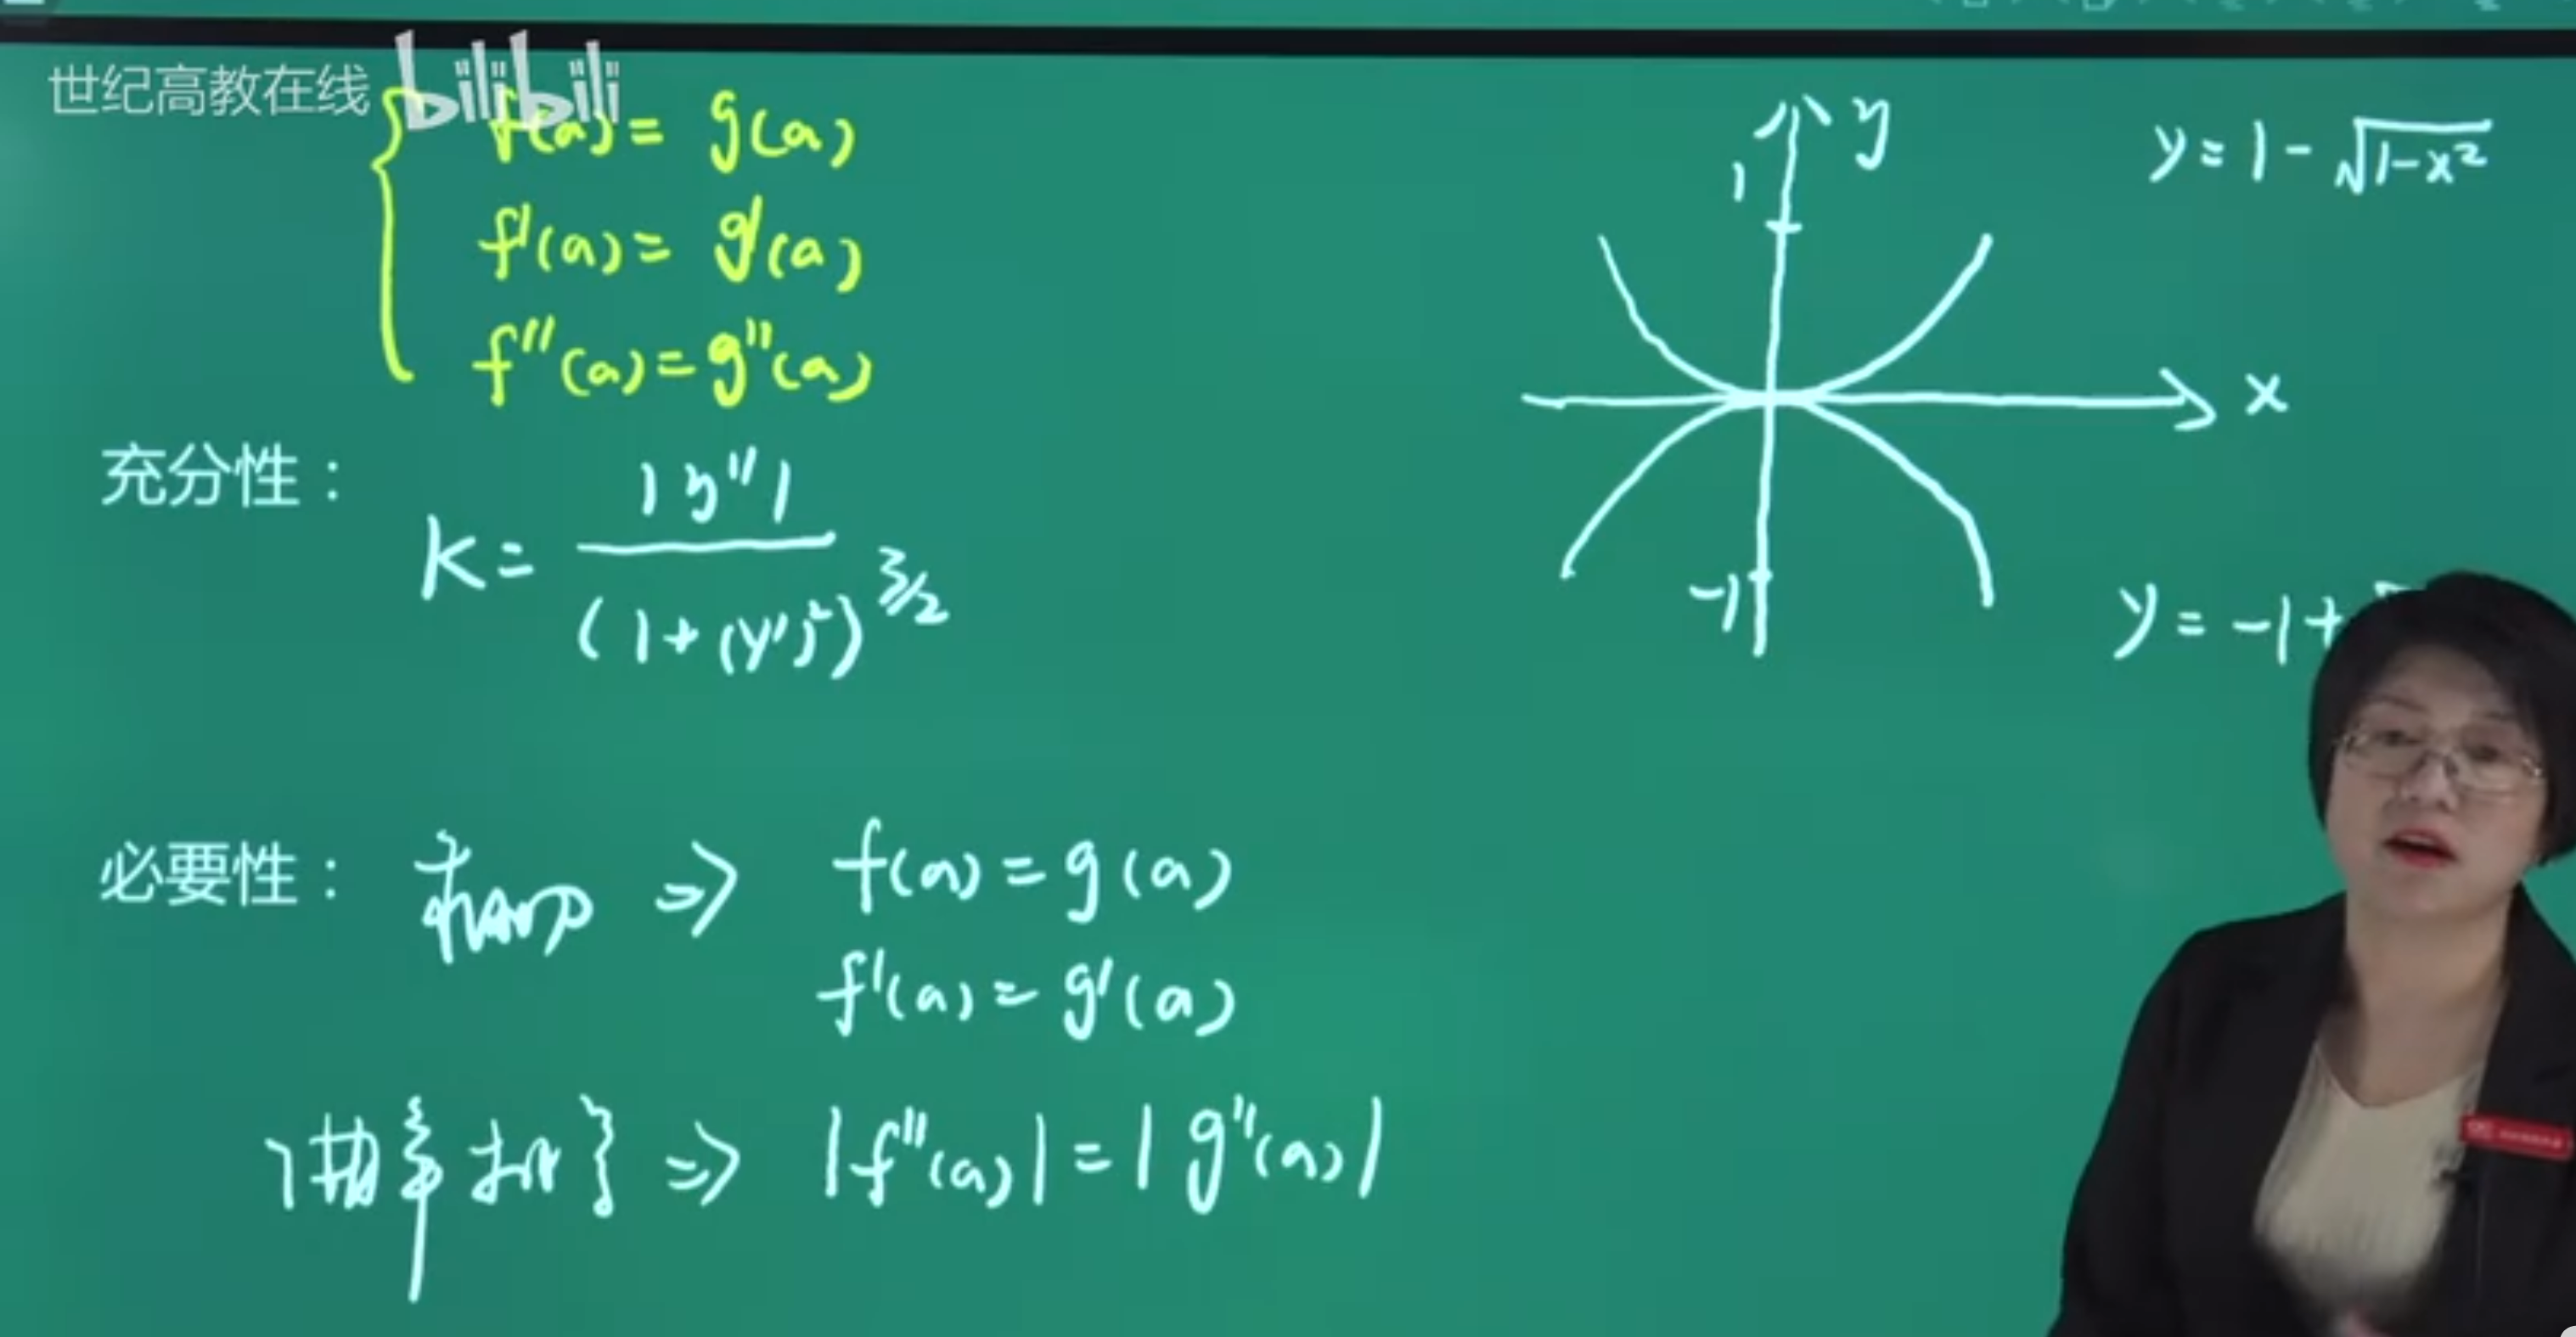 世纪高教在线 bilibili
f(a) = g(a)
f'(a) = g'(a)
f''(a) = g''(a)
充分性：
K = |y''| / (1+(y')²)^3/2
必要性： 相切 ⇒ f(a) = g(a)
f'(a) = g'(a)
曲率相等 ⇒ |f''(a)| = |g''(a)|
y
1
y = 1 - √1-x²
x
-1
y = -1 +